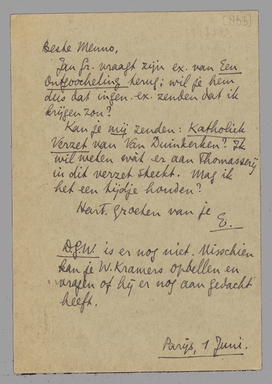 [1933]
Beste Menno,
Jan Gr. vraagt zijn ex. van Een
Ontgoocheling terug; wil je hem
dus dat ingen. ex. zenden dat ik
krijgen zou?
Kan je mij zenden: Katholiek
Verzet van Van Duinkerken? Ik
wil weten wàt er aan Thomasserij
in dit verzet steekt. Mag ik
het een tijdje houden?
Hart. groeten van je
E.
D.G.W. is er nog niet. Misschien
kan je W. Kramers opbellen en
vragen of hij er nog aan gedacht
heeft.
Parijs, 1 Juni.